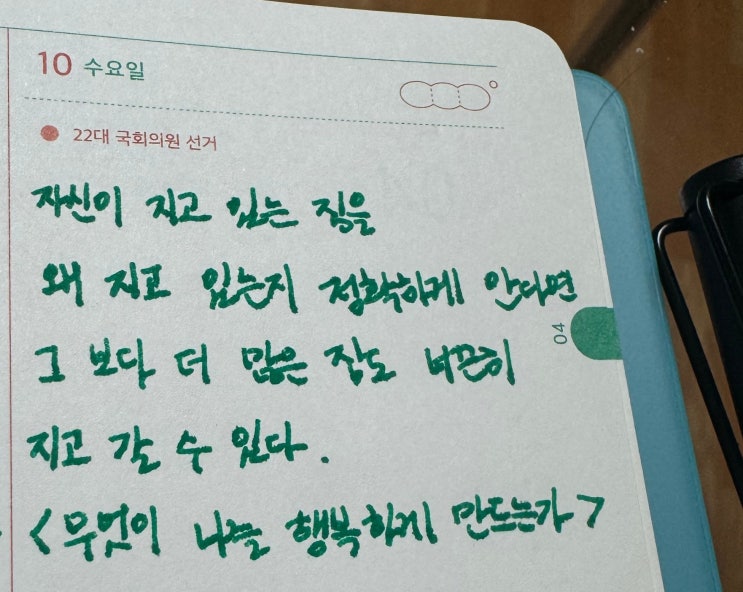 10 수요일
22대 국회의원 선거
자신이 지고 있는 짐을
왜 지고 있는지 정확하게 안다면
그 보다 더 많은 짐도 너끈히
지고 갈 수 있다.
04
<무엇이 나를 행복하게 만드는가>